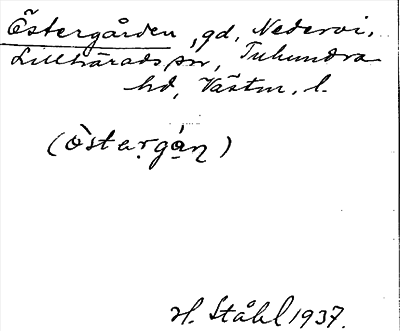 Östergården, gd, Nedervi,
Lillhärads sn, Tuhundra
hd, Västm. l.
(òstaṛgá̤ṇ)
H. Ståhl 1937.